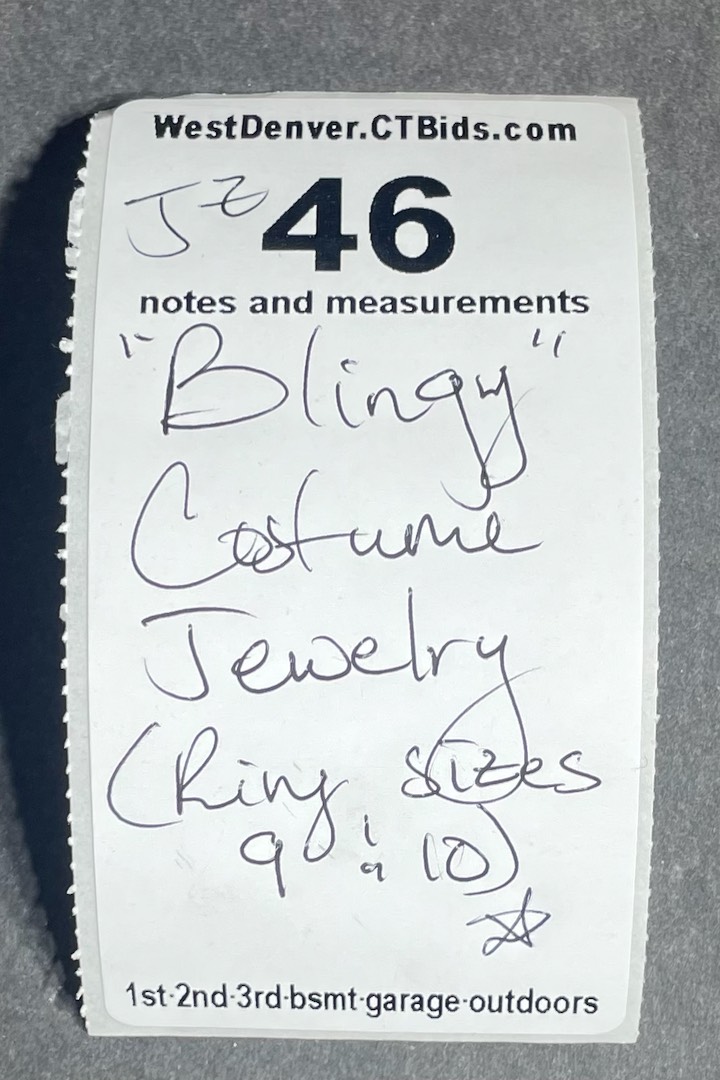 WestDenver.CTBids.com
JZ 46
notes and measurements
"Blingy"
Costume
Jewelry
(Ring sizes
9 & 10)
1st-2nd-3rd-bsmt-garage-outdoors